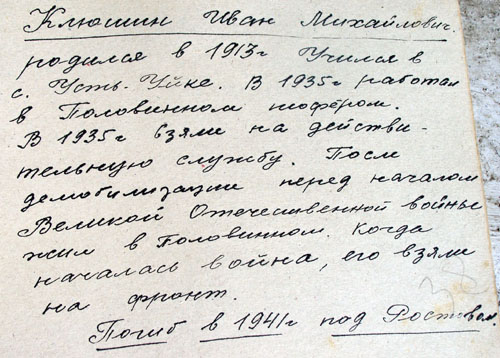 Клюшин Иван Михайлович.
родился в 1913г Учился в
с. Усть-Уйке. В 1935г работал
в Половинном шофёром.
В 1935г взяли на действи-
тельную службу. После
демобилизации перед началом
Великой Отечественной войны
жил в Половинном. Когда
началась война, его взяли
на фронт.
Погиб в 1941г под Ростовом